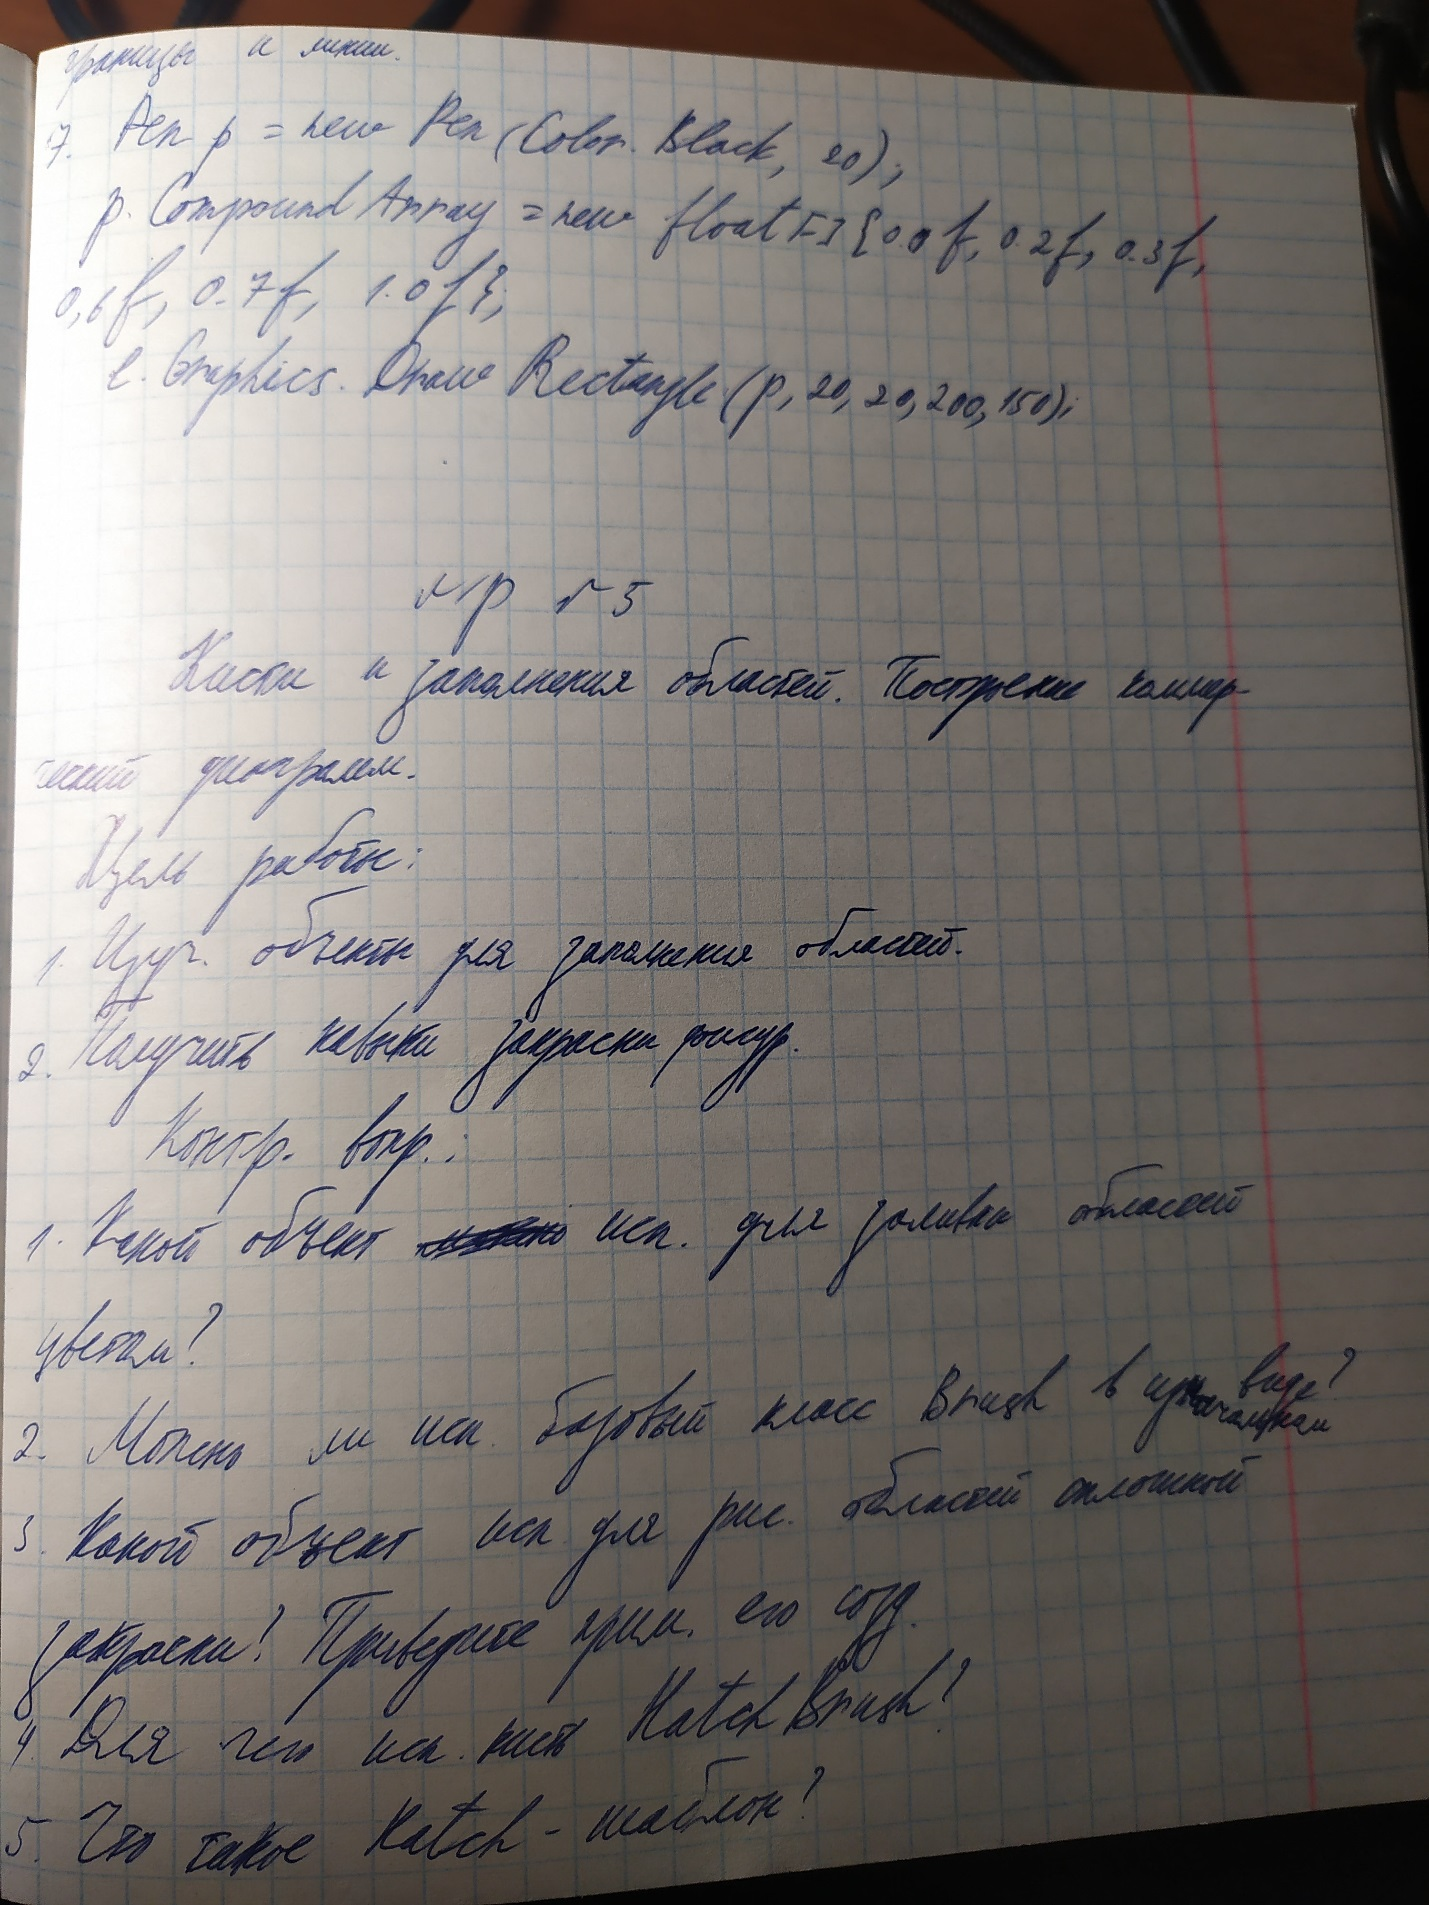 границы и линии.
7. Pen p = new Pen (Color. Black, 20);
p. Compound Array = new float [] { 0.0f, 0.2f, 0.3f,
0,6f, 0.7f, 1.0f};
e. Graphics. Draw Rectangle (p, 20, 20, 200, 150);
пр №5
Кисти и заполнения областей. Построение коммер-
ческий диограмм.
Цель работы:
1. Изуч. объекты для заполнения областей.
2. Получить навыки закраски фигур.
Контр. вопр.:
1. Какой объект исп. для заливки областей
цветом?
2. Можно ли исп. базовый класс Brush в изначальном виде?
3. Какой объект исп для рис. областей сплошной
закраски? Приведите прим. его созд.
4. Для чего исп. кисть Hatch Brush?
5. Что такое Hatch - шаблон?